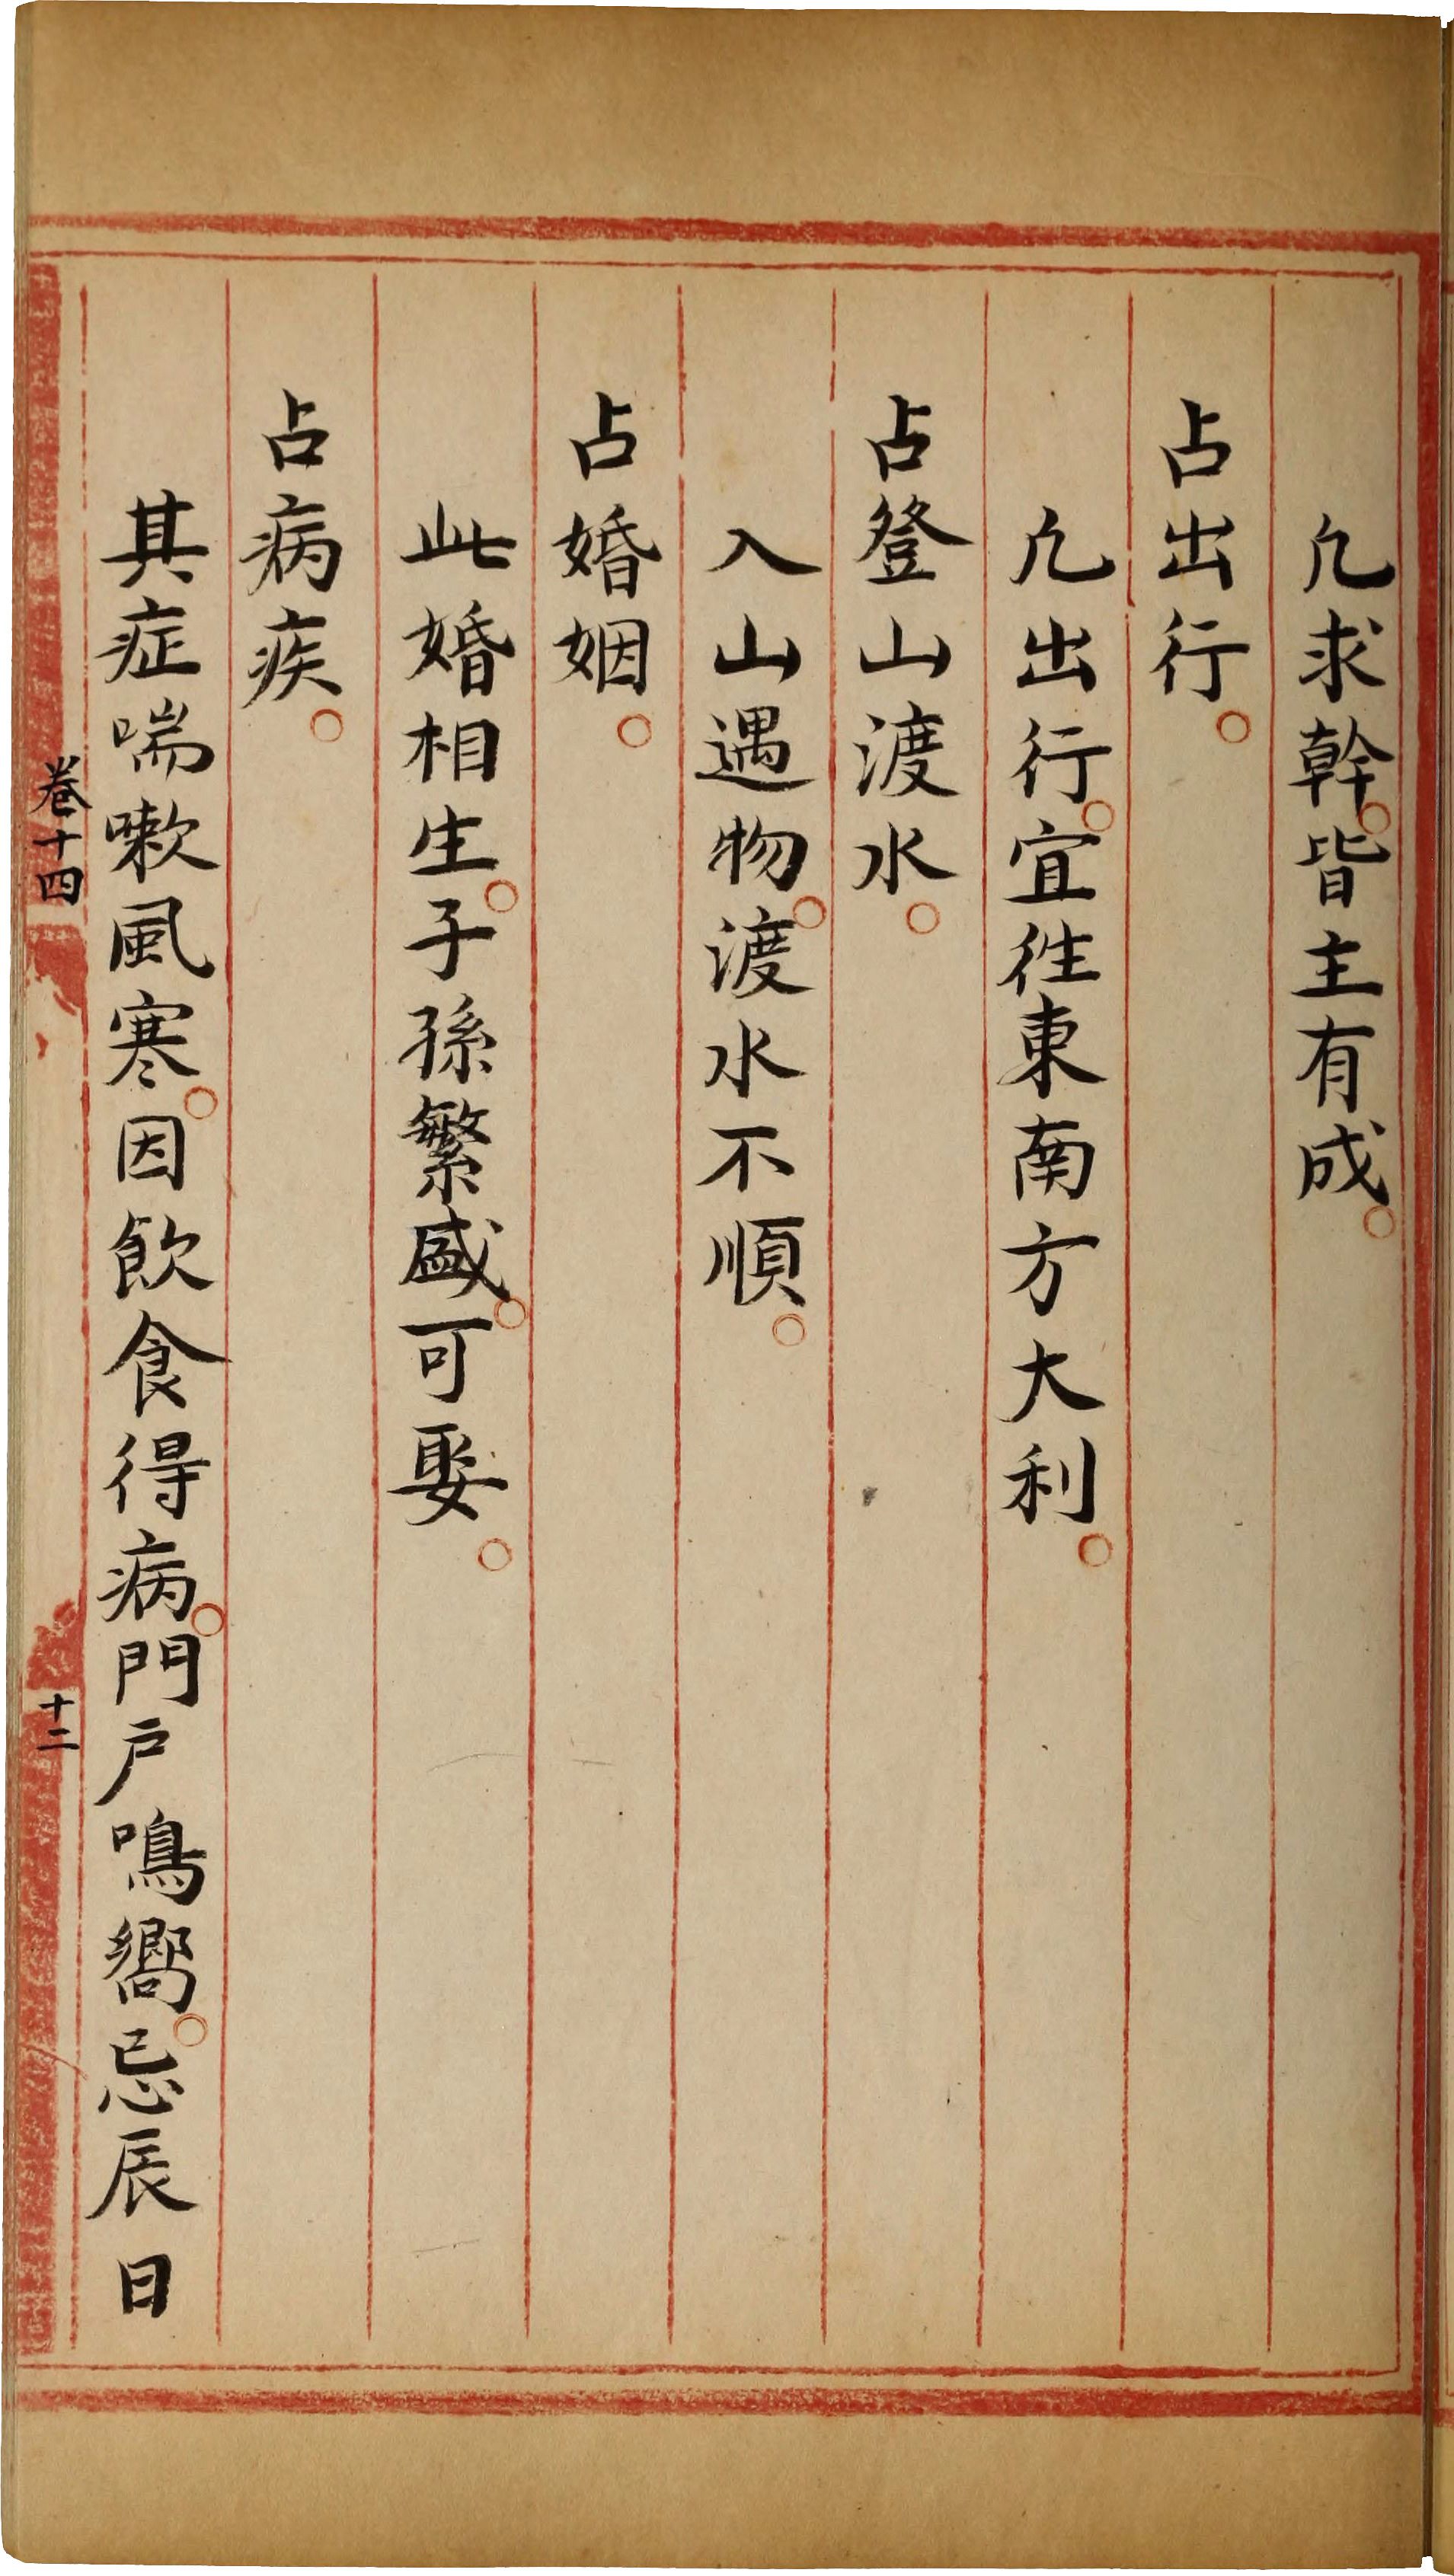 凢求幹。皆主有成。
占出行。
凢出行。宜徃東南方大利。
占登山渡水。
入山遇物。渡水不順。
占婚姻。
此婚相生。子孫繁盛。可娶。
占病疾。
其症喘嗽風寒。因飲食得病。門戶鳴嚮。忌辰日
卷十四
十二